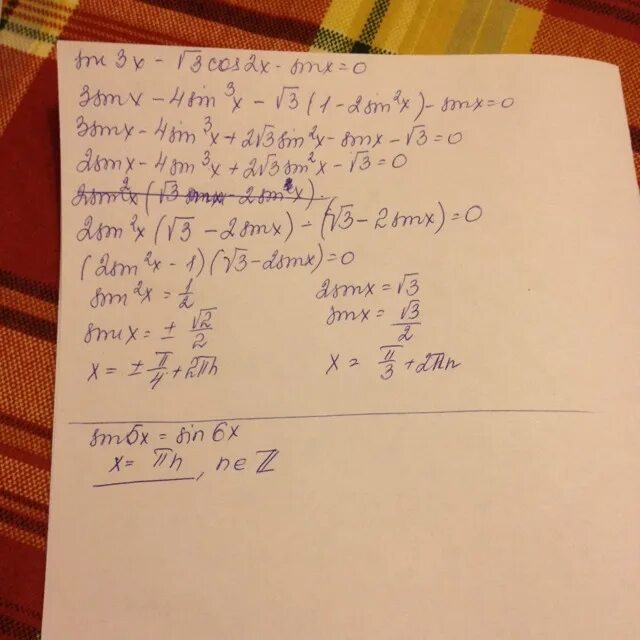 sin 3x - √3 cos 2x - sin x = 0
3 sin x - 4 sin³x - √3 (1 - 2 sin²x) - sin x = 0
3 sin x - 4 sin³x + 2√3 sin²x - sin x - √3 = 0
2 sin x - 4 sin³x + 2√3 sin²x - √3 = 0
2 sin²x (√3 - 2 sin x) - (√3 - 2 sin x) = 0
(2 sin²x - 1)(√3 - 2 sin x) = 0
sin²x = 1/2
sin x = ± √2/2
x = ± π/4 + 2πn
2 sin x = √3
sin x = √3/2
x = π/3 + 2πn
sin 5x = sin 6x
x = πn, n ∈ ℤ